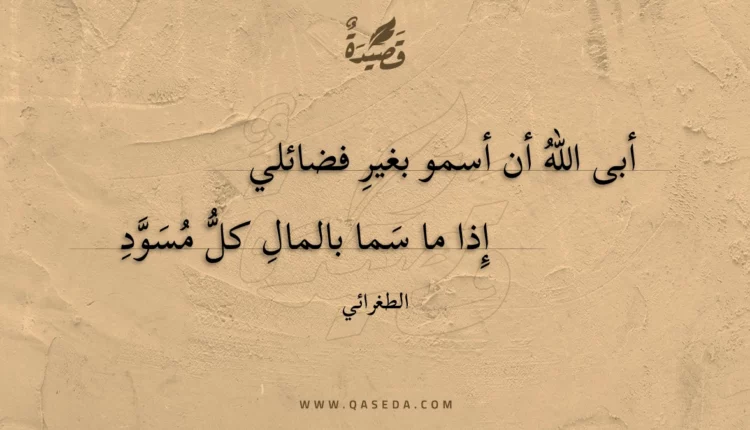 قَصِيدَةٌ
أبى اللهُ أن أسمو بغيرِ فضائلي
إِذا ما سَما بالمالِ كلُّ مُسَوَّدِ
الطغرائي
WWW.QASEDA.COM